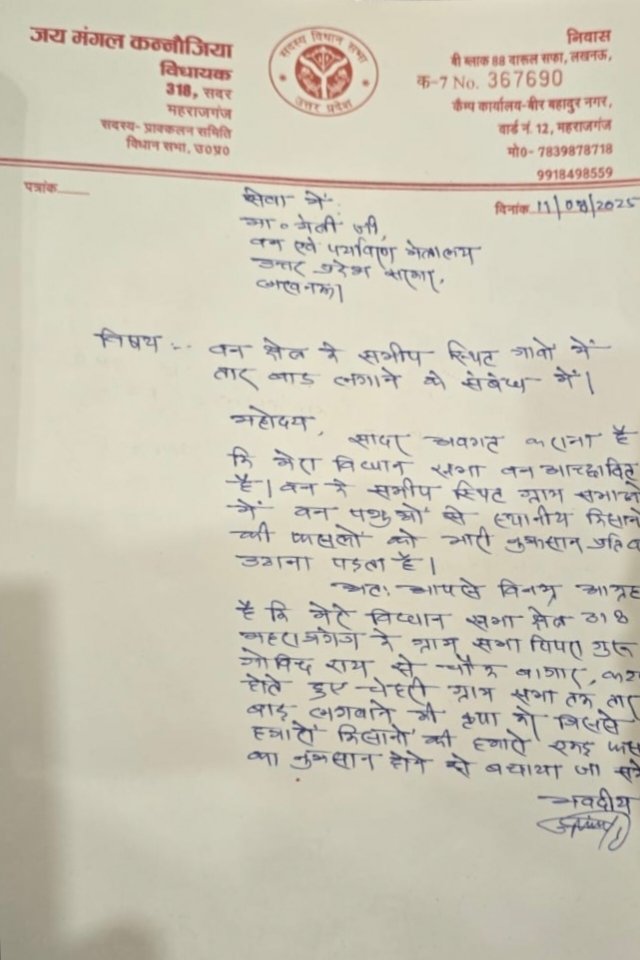 जय मंगल कन्नौजिया
विधायक
318, सदर
महराजगंज
सदस्य- प्राक्कलन समिति
विधान सभा, उ०प्र०
सदस्य विधान सभा
उत्तर प्रदेश
निवास
बी ब्लाक 88 दारूल सफा, लखनऊ,
क-7 No. 367690
कैम्प कार्यालय-बीर बहादुर नगर,
वार्ड नं. 12, महराजगंज
मो०- 7839878718
9918498559
पत्रांक
दिनांक 11/08/2025
सेवा में
मा० मंत्री जी,
वन एवं पर्यावरण मंत्रालय
उत्तर प्रदेश सरकार,
लखनऊ।
विषय :- वन क्षेत्र के समीप स्थित गावों में
तार बाड़ लगाने के संबंध में।
महोदय,
सादर अवगत कराना है
कि मेरा विधान सभा वन आच्छादित
है। वन के समीप स्थित ग्राम सभाओं
में वन पशुओं से स्थानीय किसानों
की फसलों को भारी नुकसान
उठाना पड़ता है।
अतः आपसे विनम्र आग्रह
है कि मेरे विधान सभा क्षेत्र 318
महराजगंज के ग्राम सभा पिपरा गुरू
गोविंद राय से चौक बाजार,
होते हुए चेहरी ग्राम सभा तक तार
बाड़ लगवाने की कृपा करें जिससे
हमारे किसानों की हजारों एकड़ फसल
का नुकसान होने से बचाया जा सके
भवदीय